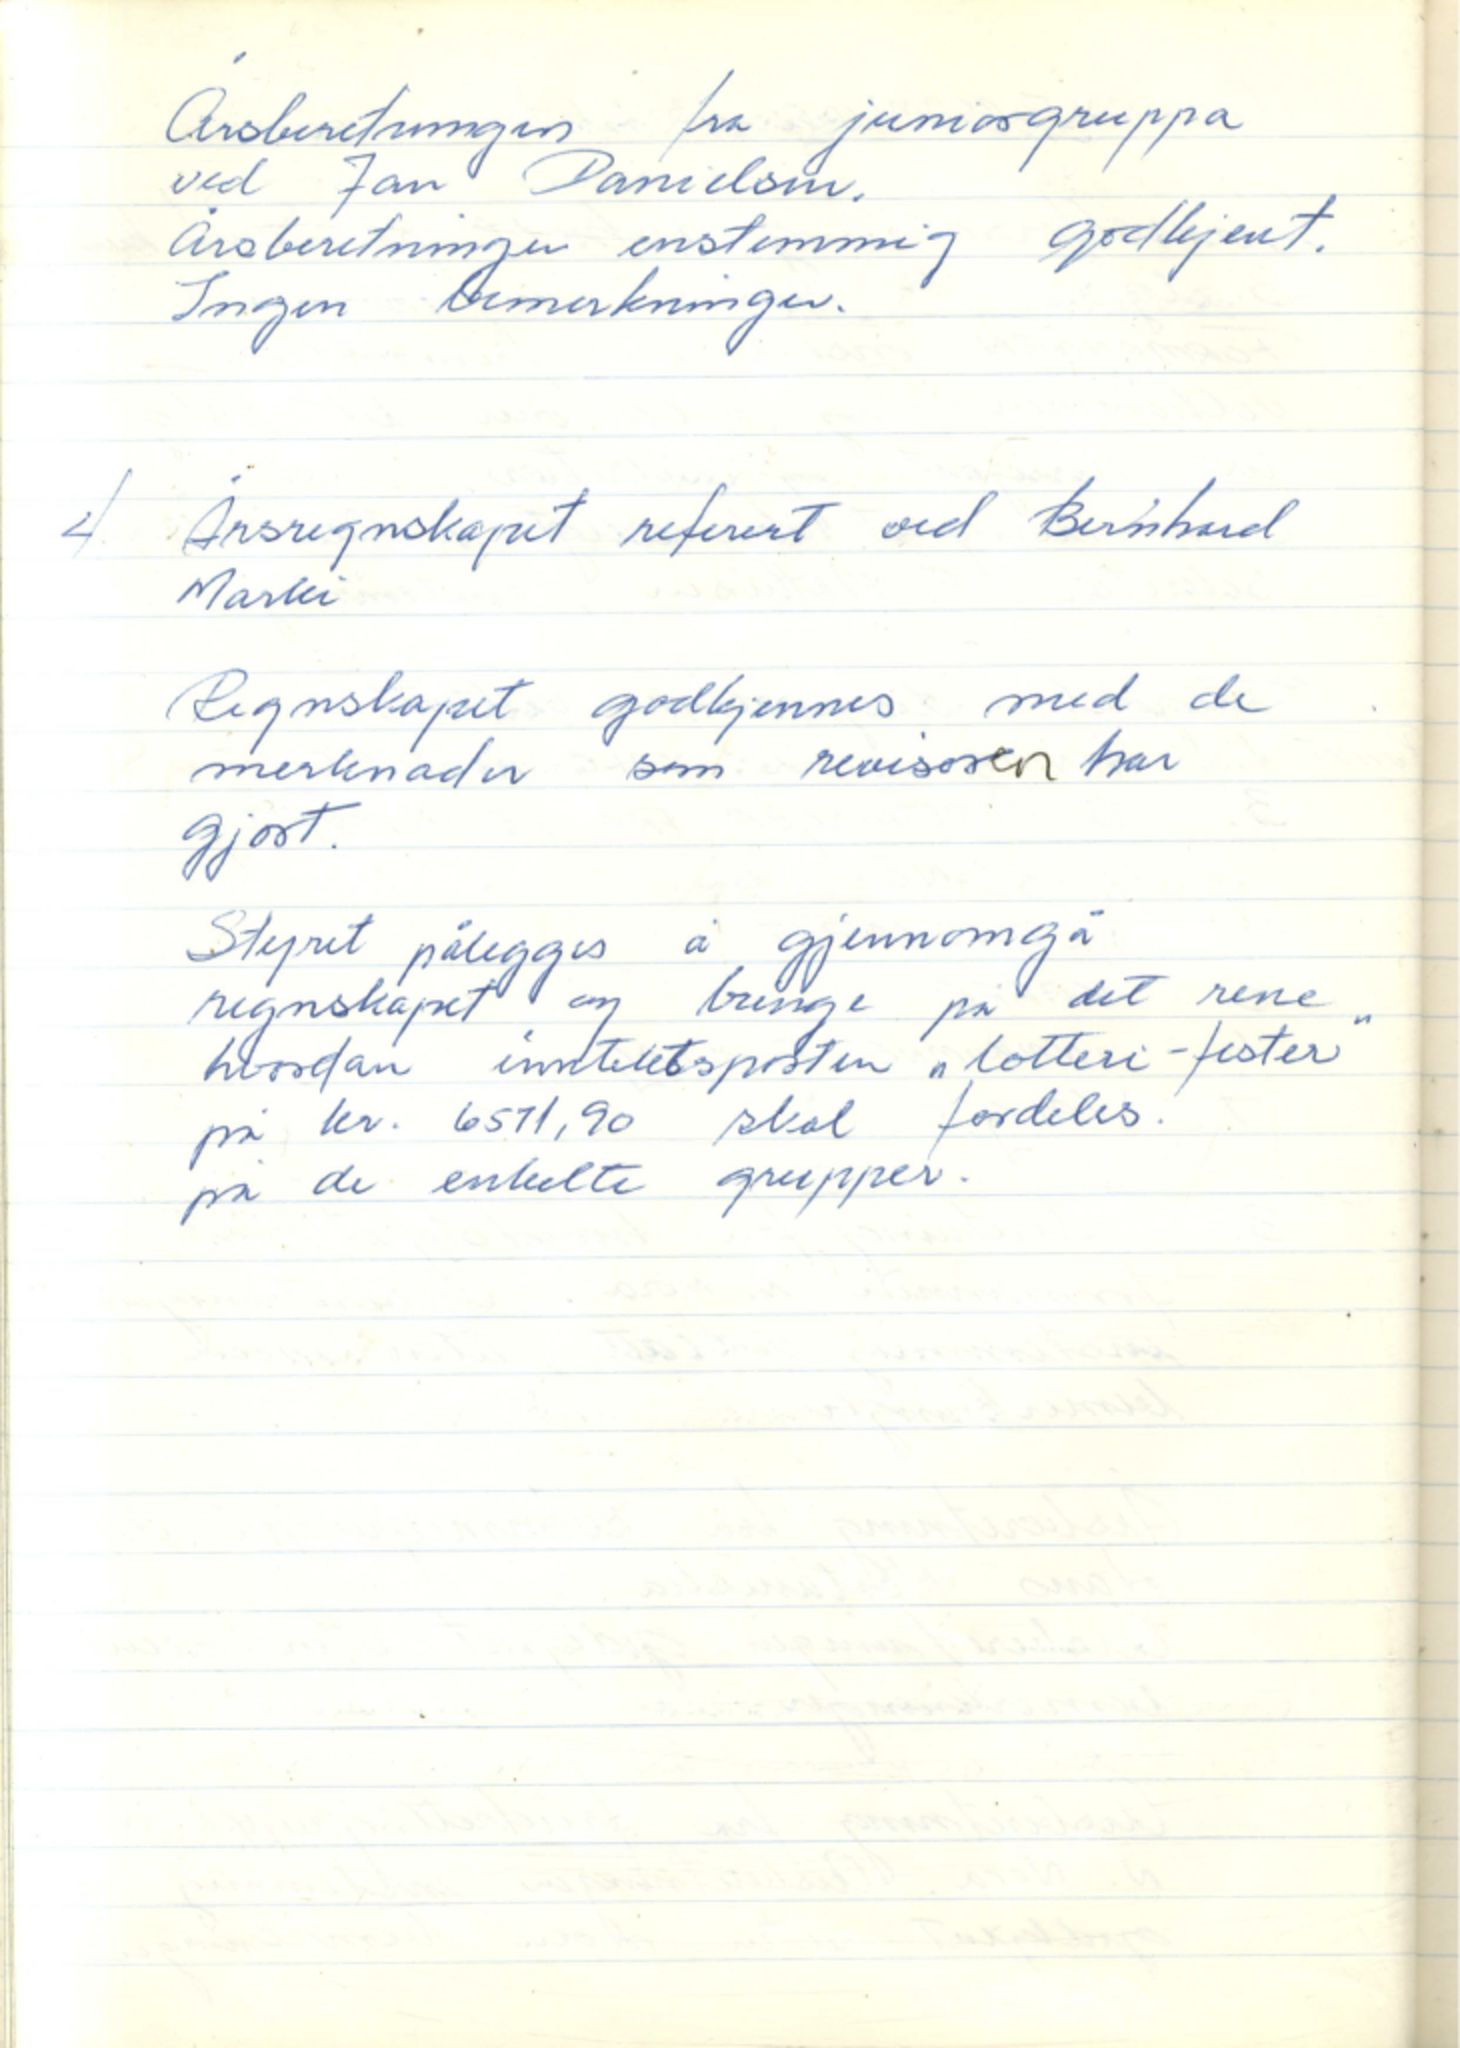 Årsberetningen fra juniorgruppa
ved Jan Danielsen.
Årsberetningen enstemmig godkjent.
Ingen bemerkninger.
4/ Årsregnskapet referert ved Bernhard
Marki
Regnskapet godkjennes med de
merknader som revisoren har
gjort.
Styret pålegges å gjennomgå
regnskapet og bringe på det rene
hvordan inntektsposten „lotteri-fester"
på kr. 6571,90 skal fordeles.
på de enkelte grupper.